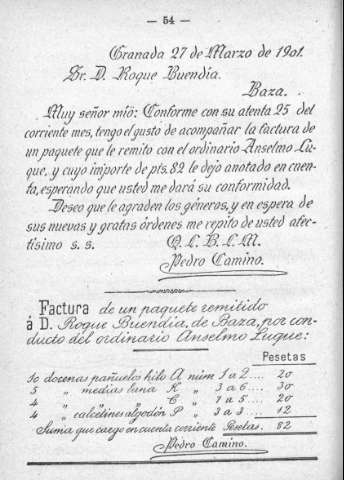 — 54 —
Granada 27 de Marzo de 1901.
Sr. D. Roque Buendía.
Baza.
Muy señor mió: Conforme con su atenta 25 del
corriente mes, tengo el gusto de acompañar la factura de
un paquete que le remito con el ordinario Anselmo Lu-
que, y cuyo importe de pts. 82 le dejo anotado en cuen-
ta, esperando que usted me dará su conformidad.
Deseo que le agraden los géneros, y en espera de
sus nuevas y gratas órdenes me repito de usted afec-
tísimo s. s. Q. L. B. L. M.
Pedro Camino.
Factura de un paquete remitido
á D. Roque Buendía, de Baza, por con-
ducto del ordinario Anselmo Luque:
Pesetas
10 docenas pañuelos hilo A núm 1 a 2.... 20
5 „ medias lana K „ 3 a 6.... 30
4 „ „ „ C „ 1 a 5.... 20
4 „ calcetines algodón P „ 3 a 3.... 12
Suma que cargo en cuenta corriente Pesetas. 82
Pedro Camino.